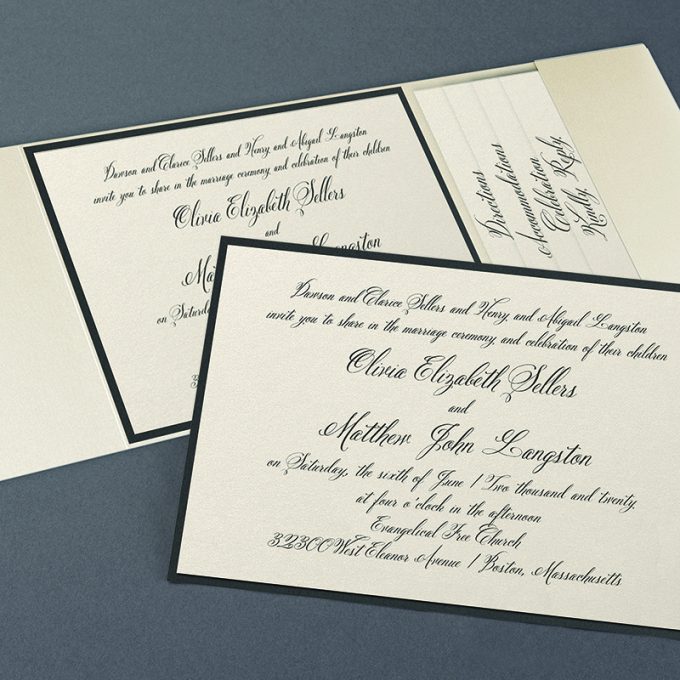 Dawson and Clarice Sellers and Henry and Abigail Langston
invite you to share in the marriage ceremony and celebration of their children
Olivia Elizabeth Sellers
and
Langston
on Saturday
Directions
Accommodations
Celebration
Kindly, Reply,
Dawson and Clarice Sellers and Henry, and Abigael Langston
invite you to share in the marriage ceremony, and celebration of their children
Olivia Elizabeth Sellers
and
Matthew John Langston
on Saturday, the sixth of June / Two thousand and twenty,
at four o'clock in the afternoon
Evangelical Free Church
32300 West Eleanor Avenue / Boston, Massachusetts